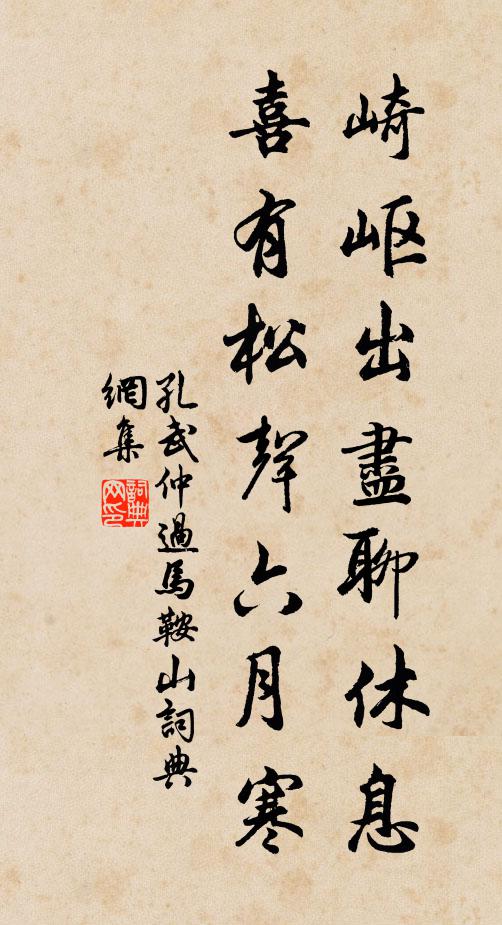 崎岖出盡聊休息
喜有松聲六月寒
孔武仲過馬鞍山詞典
網集
詞典网印